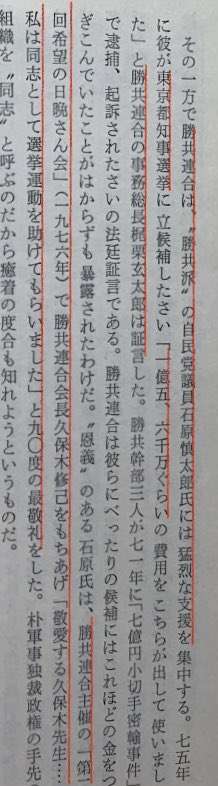 その一方で勝共連合は、〝勝共派〟の自民党議員石原慎太郎氏には猛烈な支援を集中する。七五年
に彼が東京都知事選挙に立候補したさい「一億五、六千万ぐらいの費用をこちらが出して使いまし
た」と勝共連合の事務総長梶栗玄太郎は証言した。勝共幹部三人が七一年に「七億円小切手密輸事件」
で逮捕、起訴されたさいの法廷証言である。勝共連合は彼らにべったりの候補にはこれほどの金をつ
ぎこんでいたことがはからずも暴露されたわけだ。〝恩義〟のある石原氏は、勝共連合主催の「第一
回希望の日晩さん会」(一九七六年)で勝共連合会長久保木修己をもちあげ「敬愛する久保木先生……
私は同志として選挙運動を助けてもらいました」と九〇度の最敬礼をした。朴軍事独裁政権の手先の
組織を〝同志〟と呼ぶのだから癒着の度合も知れようというものだ。